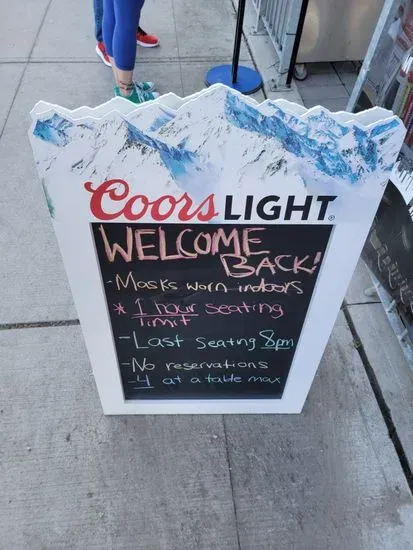 Coors LIGHT
WELCOME
BACK!
- Masks worn indoors
* 1 hour seating
limit
- Last seating 8pm
- No reservations
- 4 at a table max